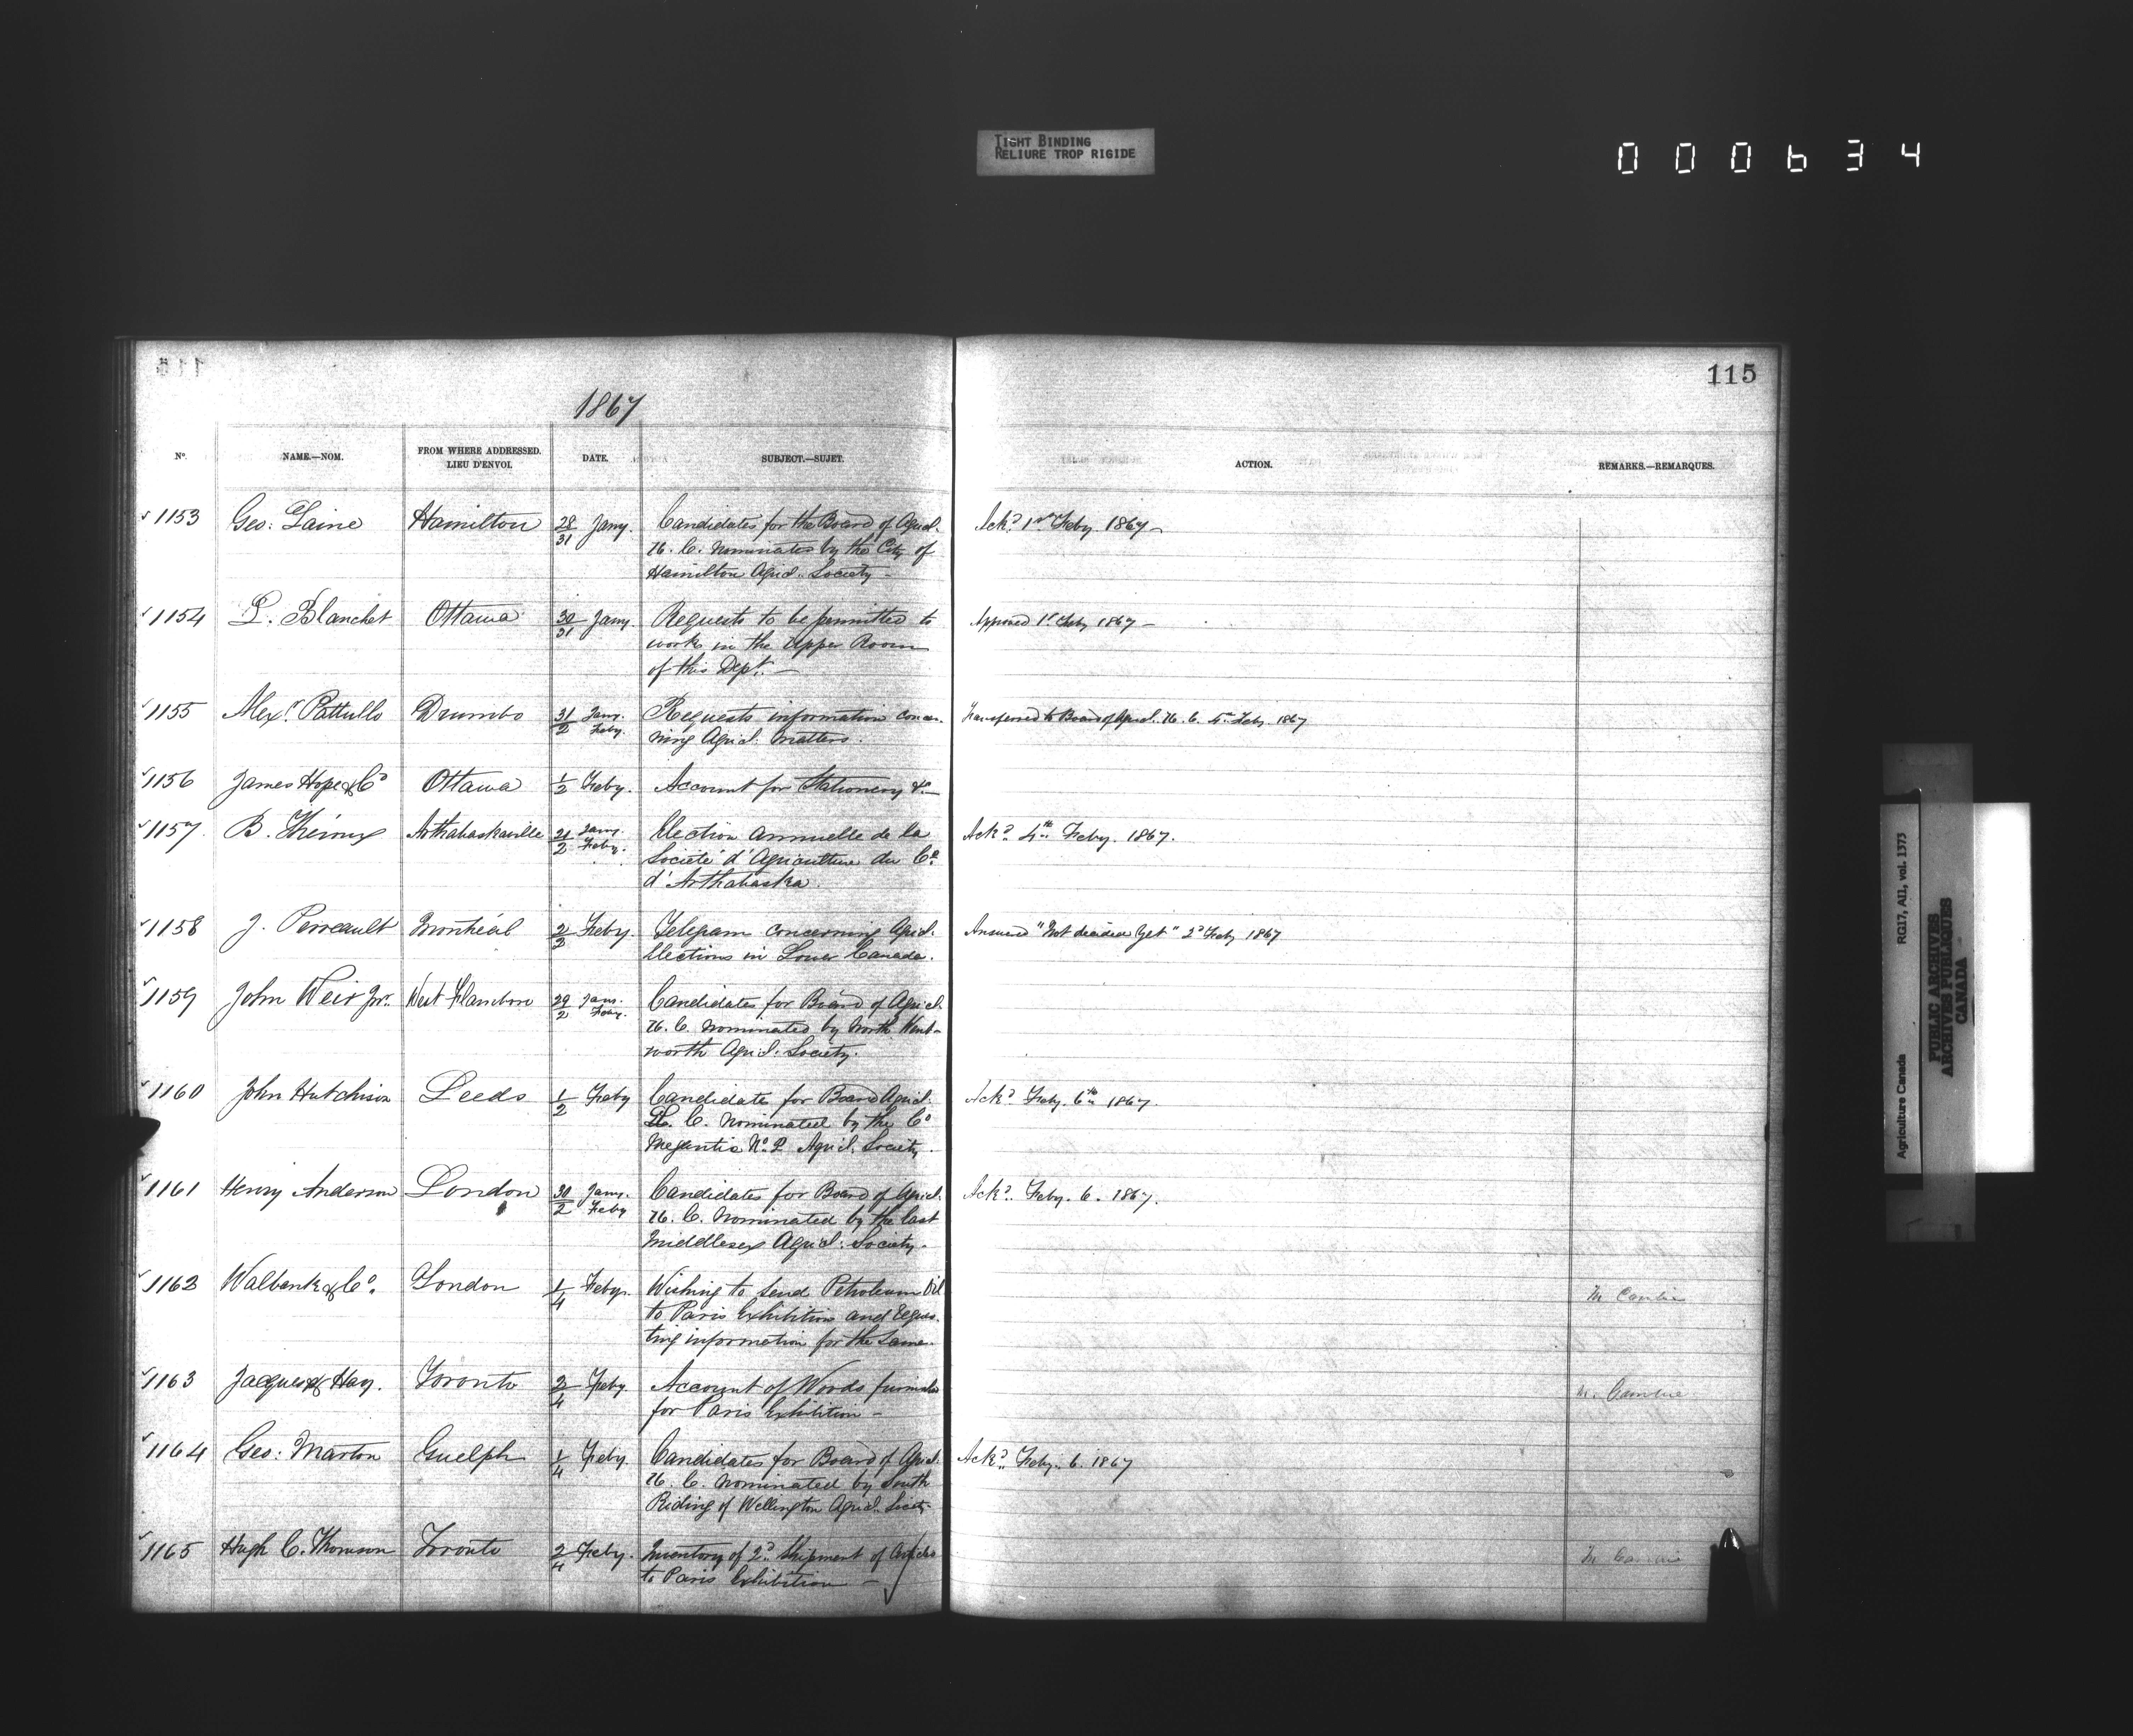 TIGHT BINDING
RELIURE TROP RIGIDE
000634
115
1867
No. NAME.—NOM. FROM WHERE ADDRESSED. LIEU D'ENVOI. DATE. SUBJECT.—SUJET. ACTION. REMARKS.—REMARQUES.
1153 Geo: Laine Hamilton 28/31 Jany. Candidates for the Board of Agricl. Ackd. 1st Feby. 1867—
U. C. nominates by the City of
Hamilton Agricl. Society—
1154 L. Blanchet Ottawa 30/31 Jany. Requests to be permitted to Approved 1st Feby 1867—
work in the Upper Room
of this Dept.—
1155 Alexr. Pattullo Drumbo 31/2 Jany. Feby. Requests information concer- Transferred to Board of Agricl. U. C. 4th Feby. 1867
ning Agricl. matters.
1156 James Hope & Co Ottawa 1/2 Feby. Account for Stationery &c—
1157. B. Théroux Arthabaskaville 21/2 Jany. Feby. Election annuelle de la Ackd. 4th Feby. 1867.
Société d'Agriculture du Co.
d'Arthabaska.
1158 J. Perreault Montréal 2/2 Feby. Telegram concerning Agricl. Answered "Not decided yet" 2d Feby 1867
Elections in Lower Canada.
1159 John Weir Jnr. West Flamboro 29/2 Jany. Feby. Candidates for Board of Agricl.
U. C. nominated by North Went-
worth Agricl. Society.
1160 John Hutchison Leeds 1/2 Feby Candidate for Board Agricl. Ackd. Feby. 6th 1867.
L. C. nominated by the Co
Megantic No. 2 Agricl. Society.
1161 Henry Anderson London 30/2 Jany. Feby Candidates for Board of Agricl. Ackd. Feby. 6. 1867.
U. C. nominated by the East
Middlesex Agricl. Society.
1162 Walbank & Co. London 1/4 Feby. Wishing to send Petroleum Oil
to Paris Exhibition and reques-
ting information for the same.
1163 Jacques & Hay. Toronto 2/4 Feby. Account of Woods furnished
for Paris Exhibition—
1164 Geo: Marton Guelph 1/4 Feby. Candidates for Board of Agricl. Ackd. Feby. 6. 1867
U. C. nominated by South
Riding of Wellington Agricl. Society
1165 Hugh C. Thomson Toronto 2/4 Feby. Inventory of 2d. Shipment of Articles
to Paris Exhibition—
Agriculture Canada RG17, AI1, vol. 1373
PUBLIC ARCHIVES
ARCHIVES PUBLIQUES
CANADA